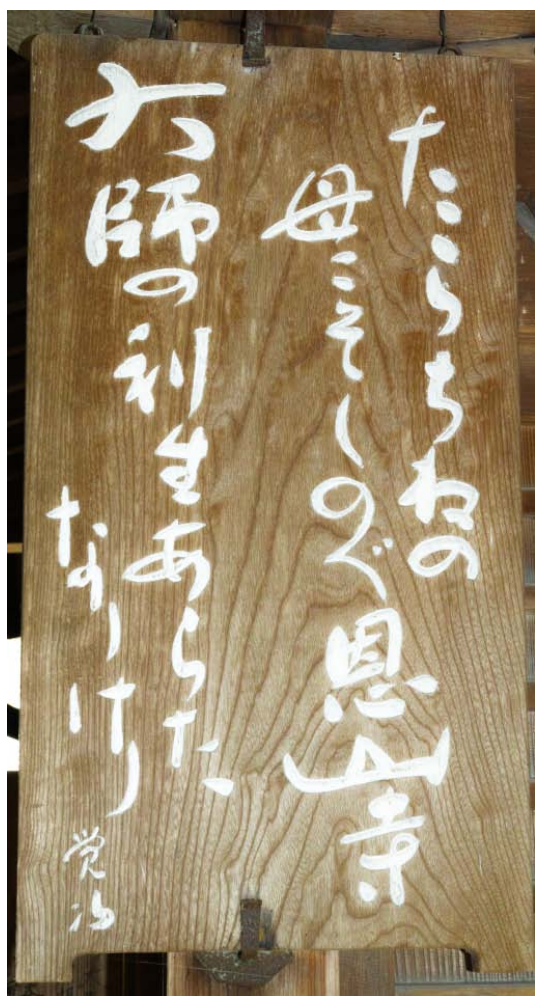 たらちねの
母こそしのぐ恩山寺
大師の利生あらた
なりけり